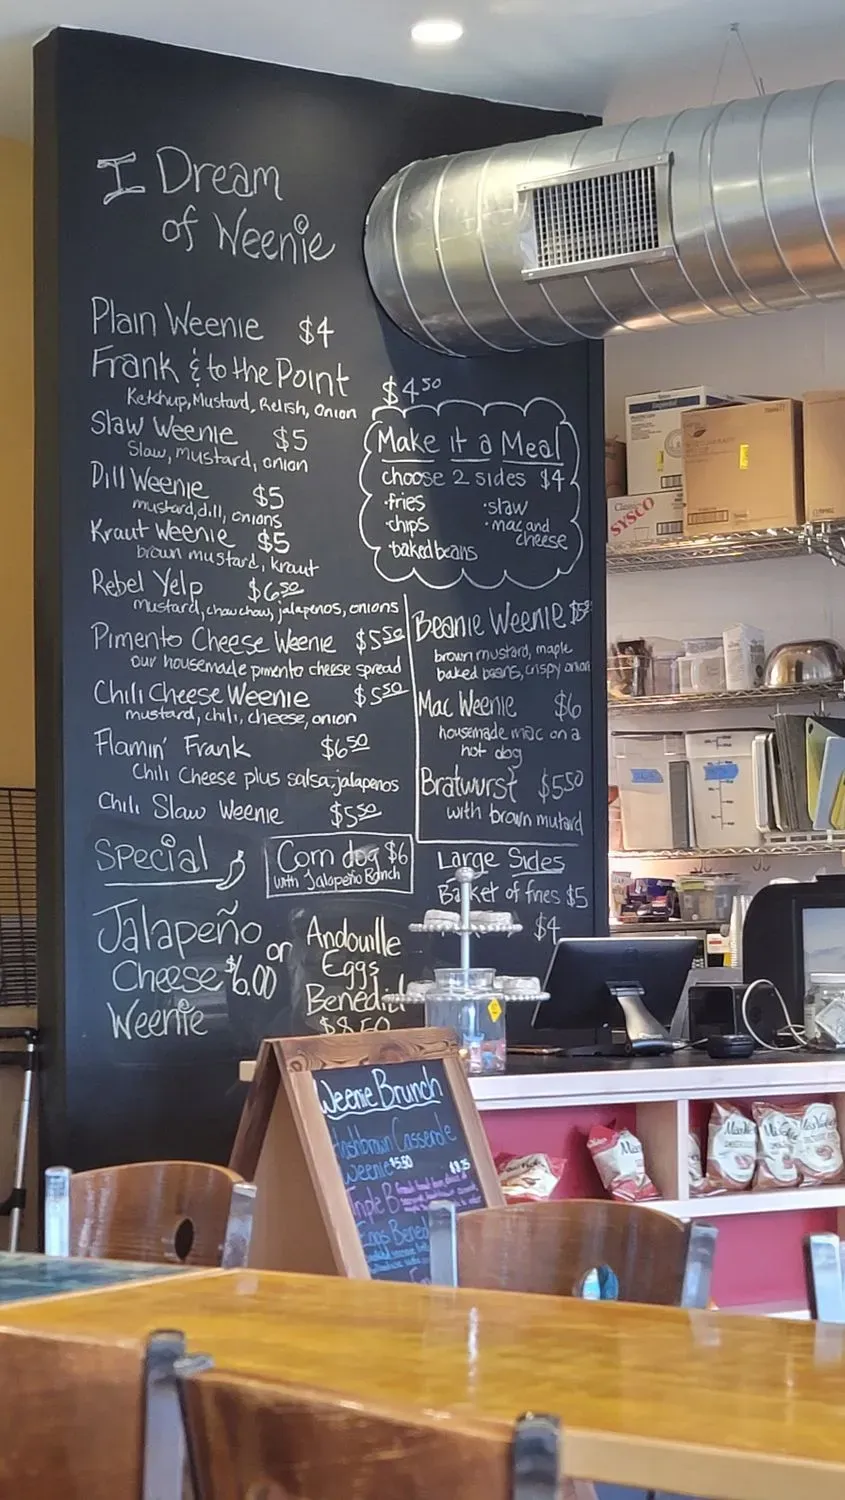 I Dream
of Weenie
Plain Weenie $4
Frank & to the Point $4.50
Ketchup, Mustard, Relish, onion
Slaw Weenie $5
Slaw, mustard, onion
Dill Weenie $5
mustard, dill, onions
Kraut Weenie $5
brown mustard, kraut
Rebel Yelp $6.50
mustard, chow chow, jalapenos, onions
Pimento Cheese Weenie $5.50
our housemade pimento cheese spread
Chili Cheese Weenie $5.50
mustard, chili, cheese, onion
Flamin' Frank $6.50
Chili Cheese plus salsa, jalapenos
Chili Slaw Weenie $5.50
Make it a Meal
choose 2 sides $4
·fries ·slaw
·chips ·mac and
cheese
·baked beans
Beanie Weenie
brown mustard, maple
baked beans, crispy onion
Mac Weenie $6
housemade mac on a
hot dog
Bratwurst $5.50
with brown mutard
Large Sides
Basket of fries $5
$4
Special
Corn dog $6
with Jalapeño Ranch
Jalapeño
Cheese $6.00
Weenie
or
Andouille
Eggs
Benedict
$8.50
Weenie Brunch
Hashbrown Casserole
Weenie $5.50
Triple B
Eggs Bened
Classic
SYSCO